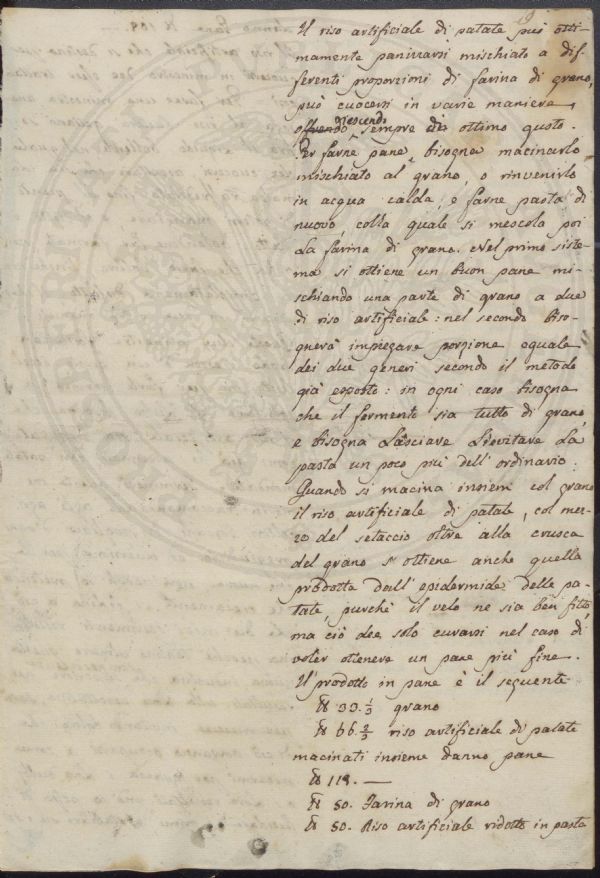 Il riso artificiale di patate può otti-
mamente panizzarsi mischiato a dif-
ferenti proporzioni di farina di grano,
può cuocersi in varie maniere,
riescendo
sempre di ottimo gusto.
Per farne pane bisogna macinarlo
mischiato al grano, o rinvenirlo
in acqua calda, e farne pasta di
nuovo, colla quale si mescola poi
La farina di grano. Nel primo siste-
ma si ottiene un buon pane mi-
schiando una parte di grano a due
di riso artificiale: nel secondo biso-
gnerà impiegare porzione eguale
dei due generi secondo il metodo
già esposto: in ogni caso bisogna
che il fermento sia tutto di grano,
e bisogna Lasciare Lievitare La
pasta un poco più dell'ordinario.
Quando si macina insiem col grano
il riso artificiale di patate, col mez-
zo del setaccio oltre alla crusca
del grano s'ottiene anche quella
prodotta dall'epidermide delle pa-
tate, purchè il velo ne sia ben fitto,
ma ciò dee solo curarsi nel caso di
voler ottenere un pane più fine.
Il prodotto in pane è il seguente
℔ 33. 1/3 grano
℔ 66. 2/3 riso artificiale di patate
macinati insieme danno pane
℔ 118. —
℔ 50. Farina di grano
℔ 50. Riso artificiale ridotto in pasta